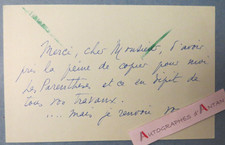 Merci, cher Monsieur, d'avoir
pris la peine de copier pour moi
les Parenthèses et ce en dépit de
tous vos travaux.
.... mais je renvoie
AUTOGRAPHES D'ANTAN